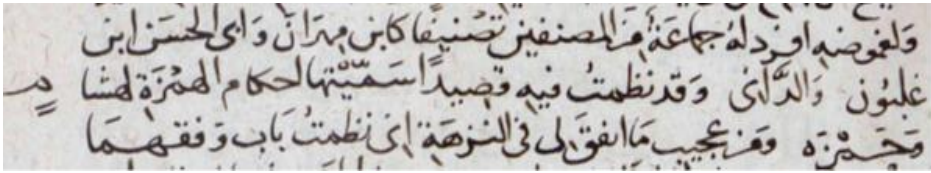 ولغموضه افرد له جماعة من المصنفين تصنيفا كابن مهران وابى الحسن ابن
غلبون والدانى وقد نظمت فيه قصيدا سميتها احكام الهمزة لهشام
وحمزه ومن عجيب ما اتفق لى فى النزهة انى نظمت باب وقفهما